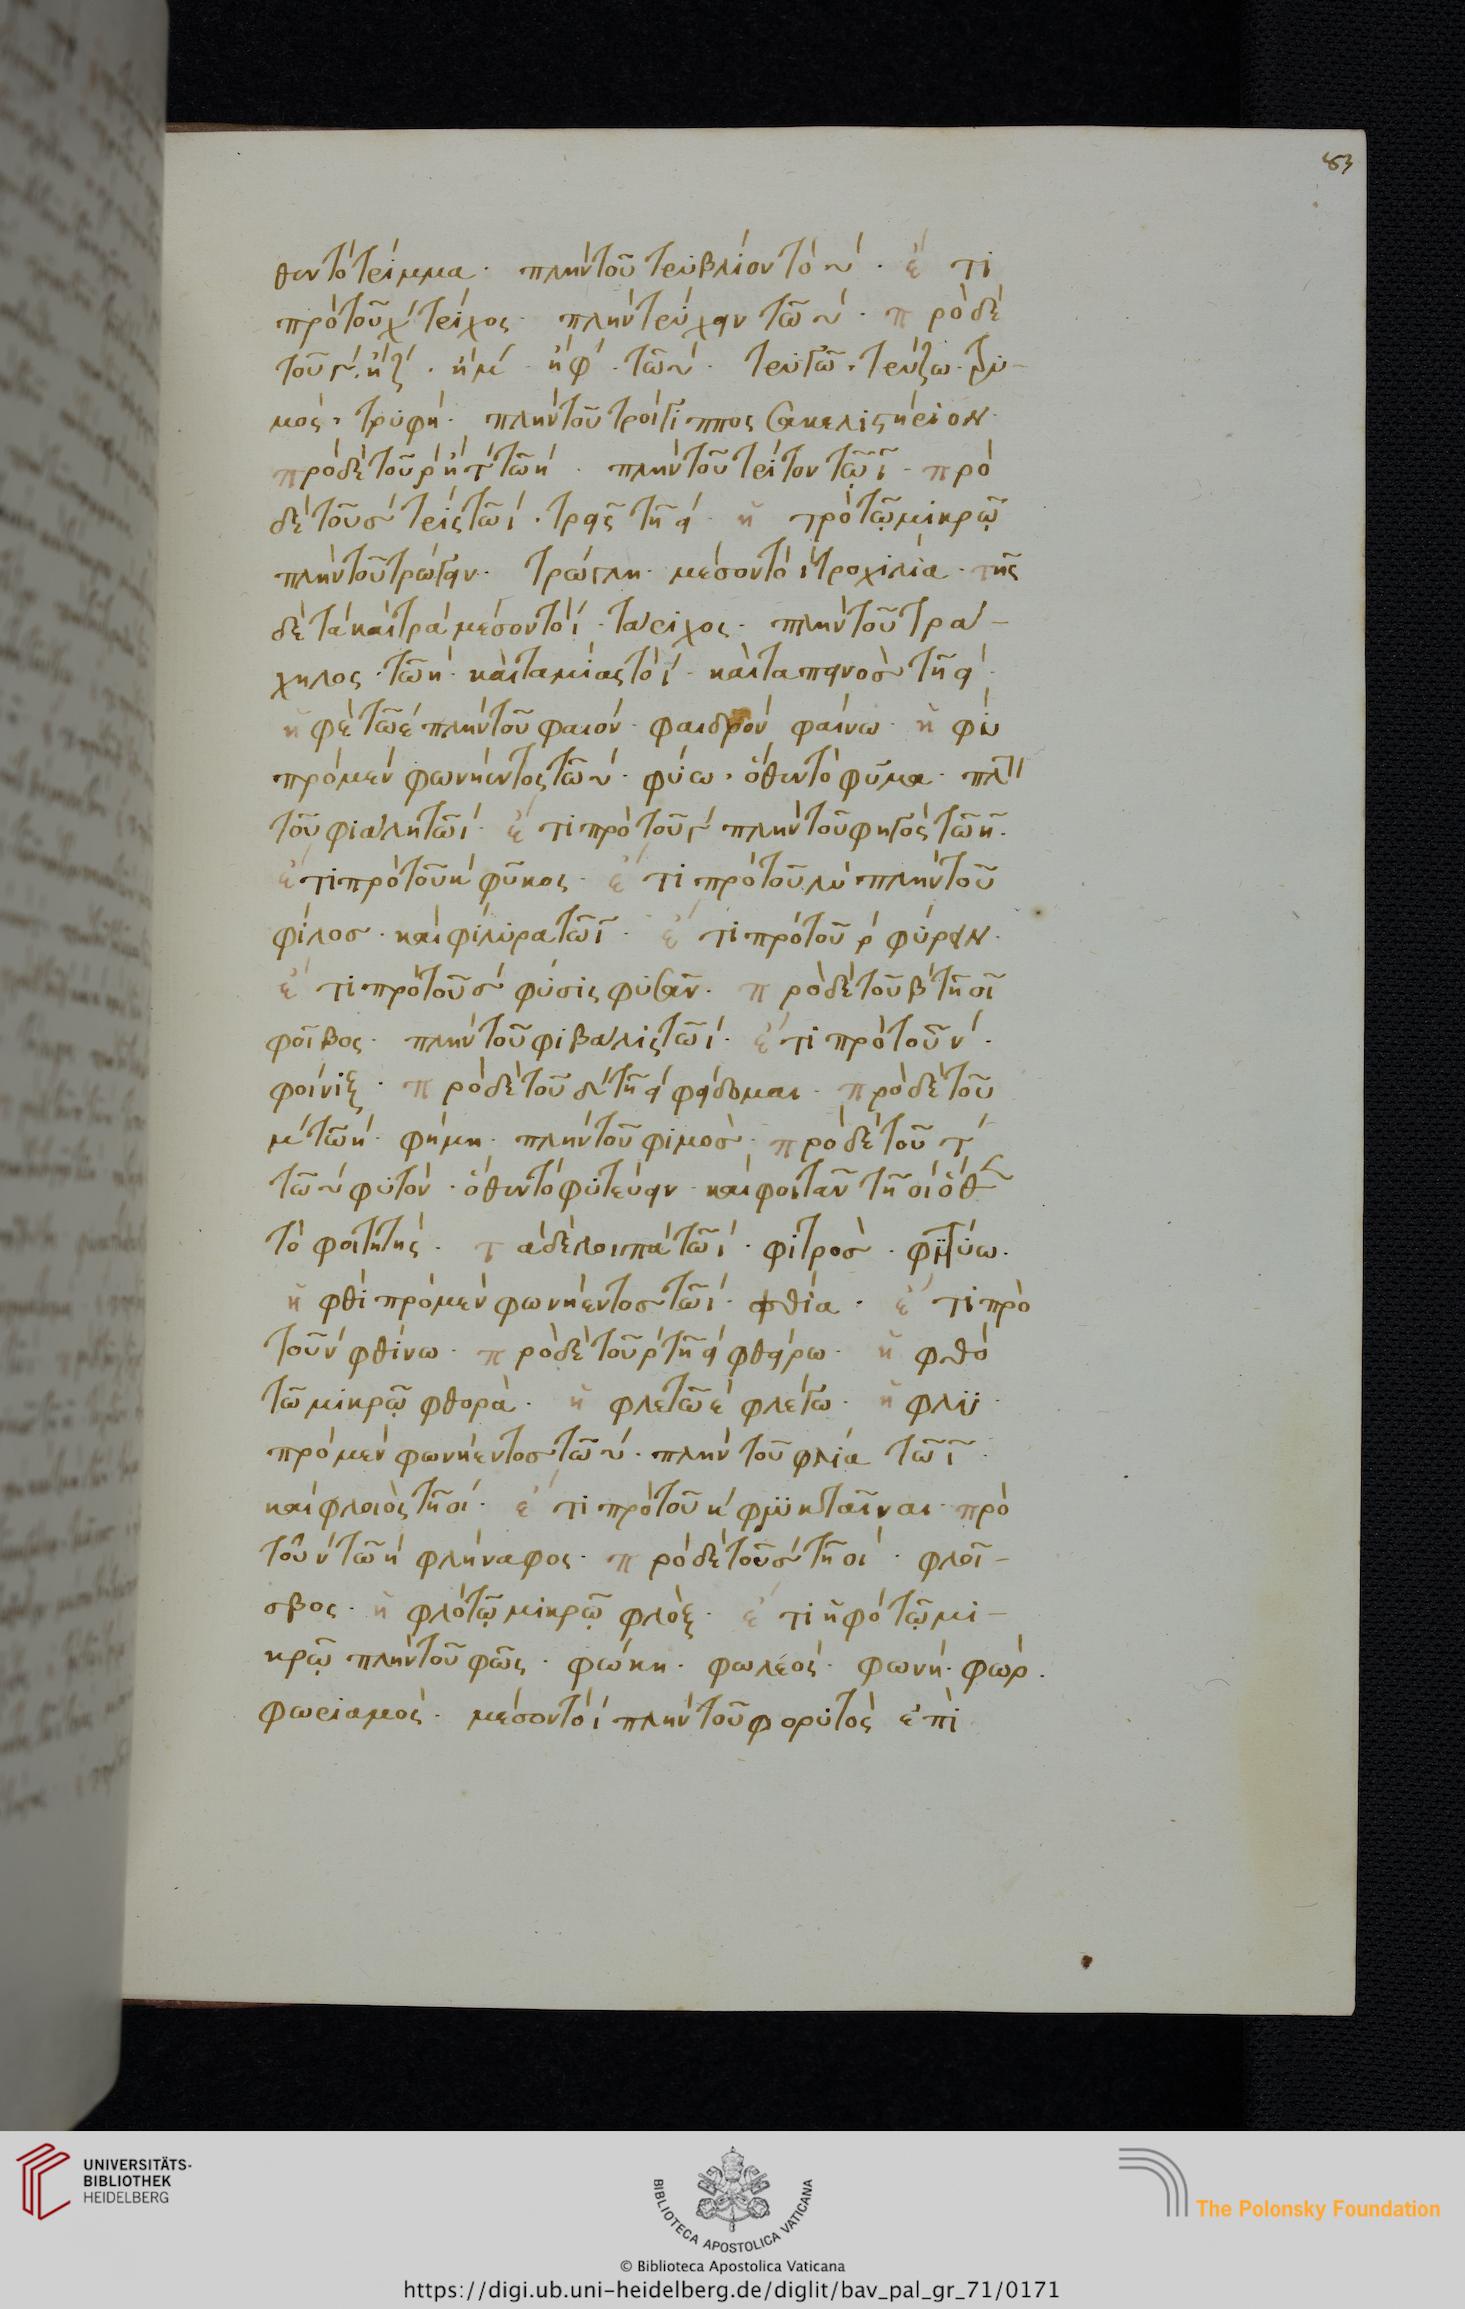 83
θεν τὸ τρίμμα · πλὴν τοῦ τρύβλιον τὸ υ · ἔτι
πρὸ τοῦ χ τρίχος · πλὴν τρύχειν τῶ υ · πρὸ δὲ
τοῦ γ ἢ ζ · ἢ μ ἢ φ · τῶ υ · τρυγῶ · τρύζω · τρυ-
μός · τρυφή · πλὴν τοῦ
πρὸ δὲ τοῦ ρ ἢ τ τῶ η · πλὴν τοῦ τρίτον τῶ ι · πρὸ
δὲ τοῦ σ τρίς τῶ ι · τρεῖς τῆ ει ἡ τρο τῶ μικρῶ
πλὴν τοῦ τρώγειν · τρώγλη · μέσον τὸ ι τροχιλία · τῆς
δὲ τα καὶ τρα μέσον τὸ ι · τάριχος · πλὴν τοῦ τρά-
χηλος · τῶ η · καὶ ταμίας τὸ ι · καὶ ταπεινὸς τῆ ει ·
ἡ φε τῶ ε πλὴν τοῦ φαιόν · φαιδρόν φαίνω · ἡ φυ
πρὸ μὲν φωνήεντος τῶ υ · φύω · ὅθεν τὸ φῦμα · πλὴν
τοῦ φιάλη τῶ ι · ἔτι πρὸ τοῦ γ πλὴν τοῦ φηγός τῶ η ·
ἔτι πρὸ τοῦ κ φῦκος · ἔτι πρὸ τοῦ λ πλὴν τοῦ
φίλος · καὶ φιλύρα τῶ ι · ἔτι πρὸ τοῦ ρ φύρειν ·
ἔτι πρὸ τοῦ σ φύσις φυσᾶν · πρὸ δὲ τοῦ β τῆ οι
φοῖβος · πλὴν τοῦ φιβαλις τῶ ι · ἔτι πρὸ τοῦ ν ·
φοίνιξ · πρὸ δὲ τοῦ δ τῆ ει φείδομαι · πρὸ δὲ τοῦ
μ τῶ η · φήμη · πλὴν τοῦ φιμὸς · πρὸ δὲ τοῦ τ
τῶ υ φυτόν · ὅθεν τὸ φυτεύειν · καὶ φοιτᾶν τῆ οι ὅθεν
τὸ φοιτητής · τὰ δὲ λοιπὰ τῶ ι · φιτρὸς · φιτύω ·
ἡ φθι πρὸ μὲν φωνήεντος τῶ ι · φθία · ἔτι πρὸ
τοῦ ν φθίνω · πρὸ δὲ τοῦ ρ τῆ ει φθείρω · ἡ φθο
τῶ μικρῶ φθορὰ · ἡ φλε τῶ ε φλέγω · ἡ φλυ ·
πρὸ μὲν φωνήεντος τῶ υ · πλὴν τοῦ φλιά τῶ ι ·
καὶ φλοιὸς τῆ οι · ἔτι πρὸ τοῦ κ φλυκταῖναι · πρὸ
τοῦ ν τῶ η φλήναφος · πρὸ δὲ τοῦ σ τῆ οι · φλοῖ-
σβος · ἡ φλο τῶ μικρῶ φλόξ · ἔτι ἡ φο τῶ μι-
κρῶ πλὴν τοῦ φῶς · φώκη · φωλέος · φωνή · φώρ ·
φωριαμός · μέσον τὸ ι πλὴν τοῦ φορυτὸς ἐπὶ
UNIVERSITÄTS-
BIBLIOTHEK
HEIDELBERG
BIBLIOTECA APOSTOLICA VATICANA
The Polonsky Foundation
© Biblioteca Apostolica Vaticana
https://digi.ub.uni-heidelberg.de/diglit/bav_pal_gr_71/0171